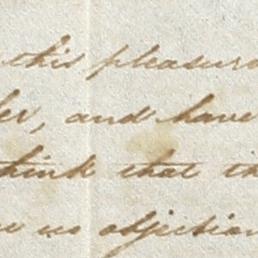 this pleasure
er, and have
think that th
no objection